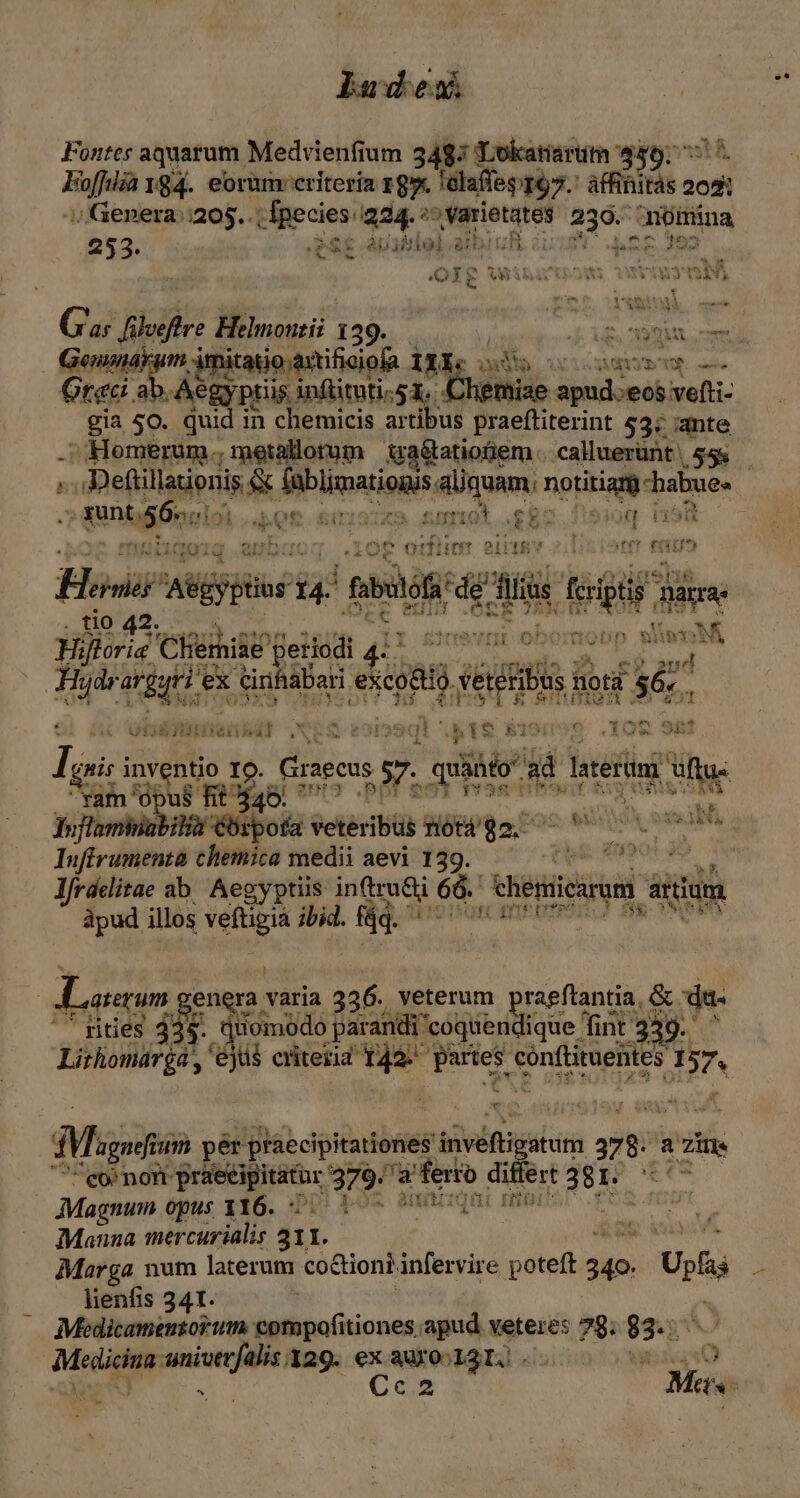 Index
Fontes aquarum Medvienſium 348. Lokanarum 359.
Foſſilia 184. eorum criteria 187. claſſes 197. affinitas 203.
Genera 205. ſpecies 224. varietates 230. nomina
253.
Gas ſilveſtre Helmontii 139.
Gemmarum imitatio artificioſa 111.
Græci ab Aegyptiis inſtituti 51. Chemiae apud eos veſti-
gia 50. quid in chemicis artibus praeſtiterint 53. ante
Homerum metallorum tractationem calluerunt 55.
Deſtillationis & ſublimationis aliquam notitiam habue-
runt 56.
Hermes Aegyptius 14. fabuloſa de illius ſcriptis narra-
tio 42.
Hiſtoriæ Chemiae periodi 4.
Hydrargyri ex cinnabari excoctio veteribus nota 56.
Ignis inventio 10. Graecus 57. quanto ad laterum uſtu-
ram opus ſit 340.
Inflammabilia corpora veteribus nota 82.
Inſtrumenta chemica medii aevi 139.
Iſraelitae ab Aegyptiis inſtructi 66. chemicarum artium
apud illos veſtigia ibid. ſqq.
Laterum genera varia 336. veterum praeſtantia & du-
rities 335. quomodo parandi coquendique ſint 339.
Lithomarga, ejus criteria 142. partes conſtituentes 157.
Magneſium per praecipitationes inveſtigatum 378. a zin-
co non praecipitatur 379. a ferro differt 381.
Magnum opus 116.
Manna mercurialis 311.
Marga num laterum coctioni inſervire poteſt 340. Upſa-
lienſis 341.
Medicamentorum compoſitiones apud veteres 78. 83.
Medicina univerſalis 129. ex auro 131.
Cc 2 Mer-